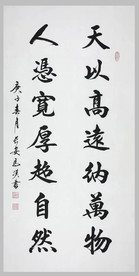 天以高遠納萬物
人憑寬厚超自然
庚子春月
書